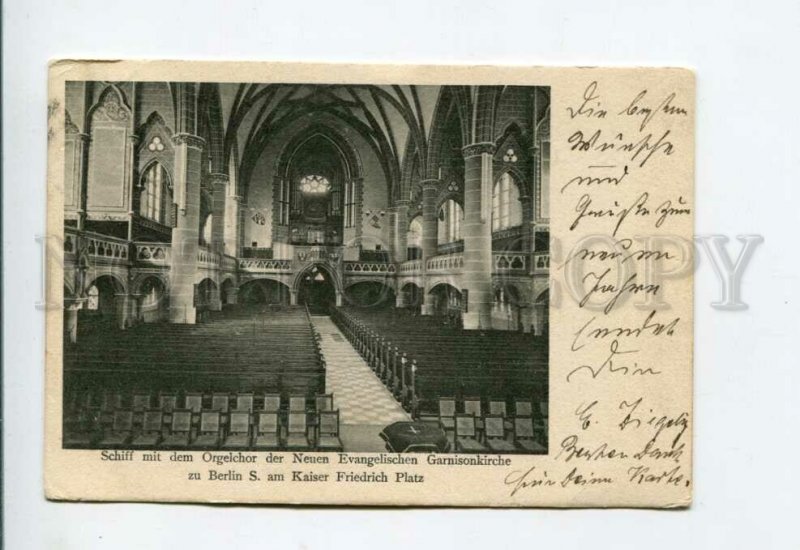 Schiff mit dem Orgelchor der Neuen Evangelischen Garnisonkirche
zu Berlin S. am Kaiser Friedrich Platz
Die besten
Wünsche
und
Grüße zum
neuen
Jahre
sendet
Dein
E.
Besten Dank
für Deine Karte.